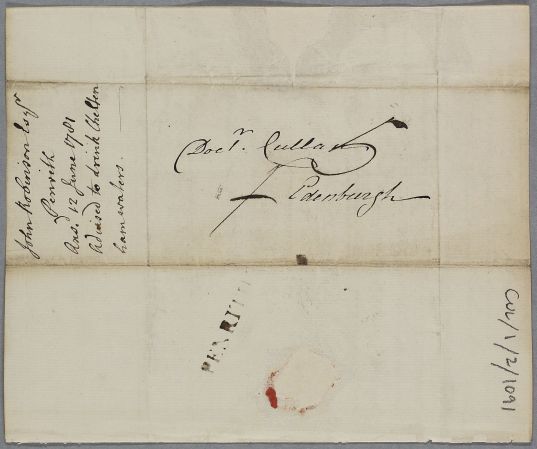 John Robinson Esqr
Penrith
Ans. 12 June 1781
Advised to drink Chelten
ham waters.
Doctr. Cullan
Edenburgh
PENRITH
CUL/1/2/1091